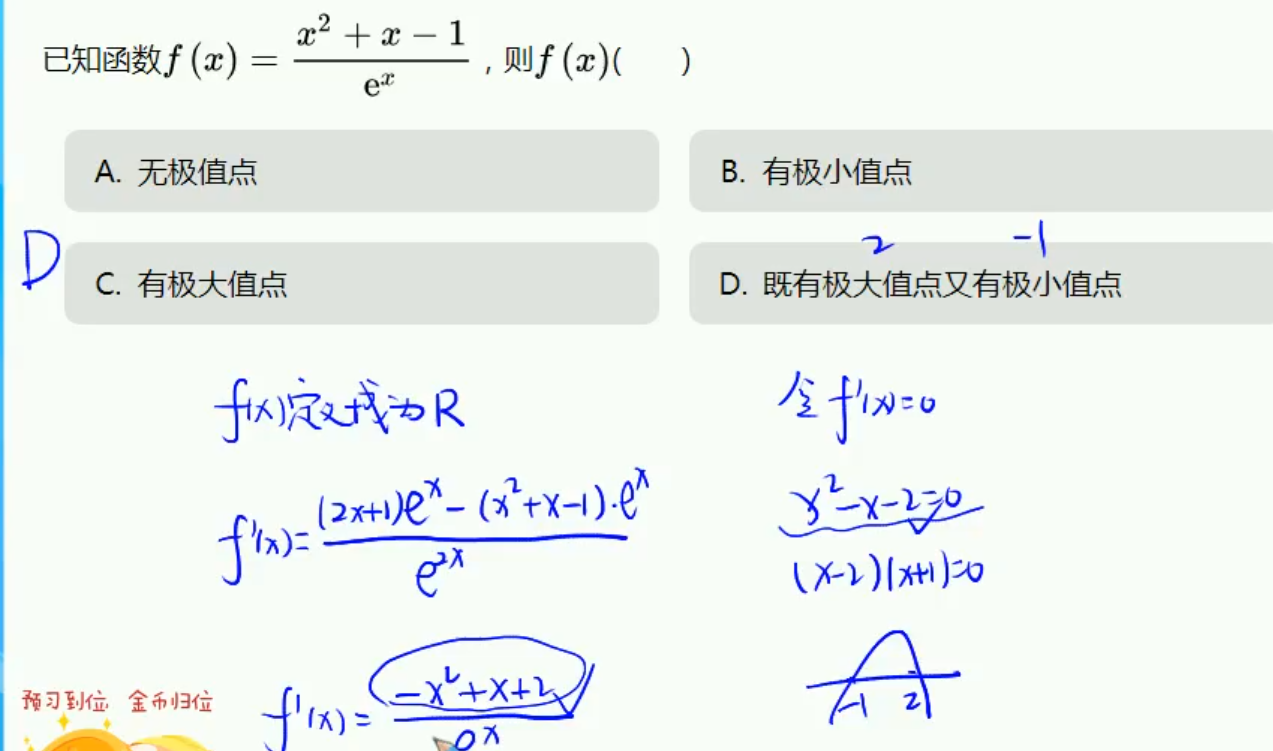 已知函数f(x) = \frac{x^2+x-1}{e^x}，则f(x)(  )
A. 无极值点
B. 有极小值点
2 -1
D
C. 有极大值点
D. 既有极大值点又有极小值点
f(x)定义域为R
令f'(x)=0
f'(x)=\frac{(2x+1)e^x-(x^2+x-1)·e^x}{e^{2x}}
x^2-x-2=0
(x-2)(x+1)=0
f'(x)=\frac{-x^2+x+2}{e^x}
-1 2
预习到位 金币归位